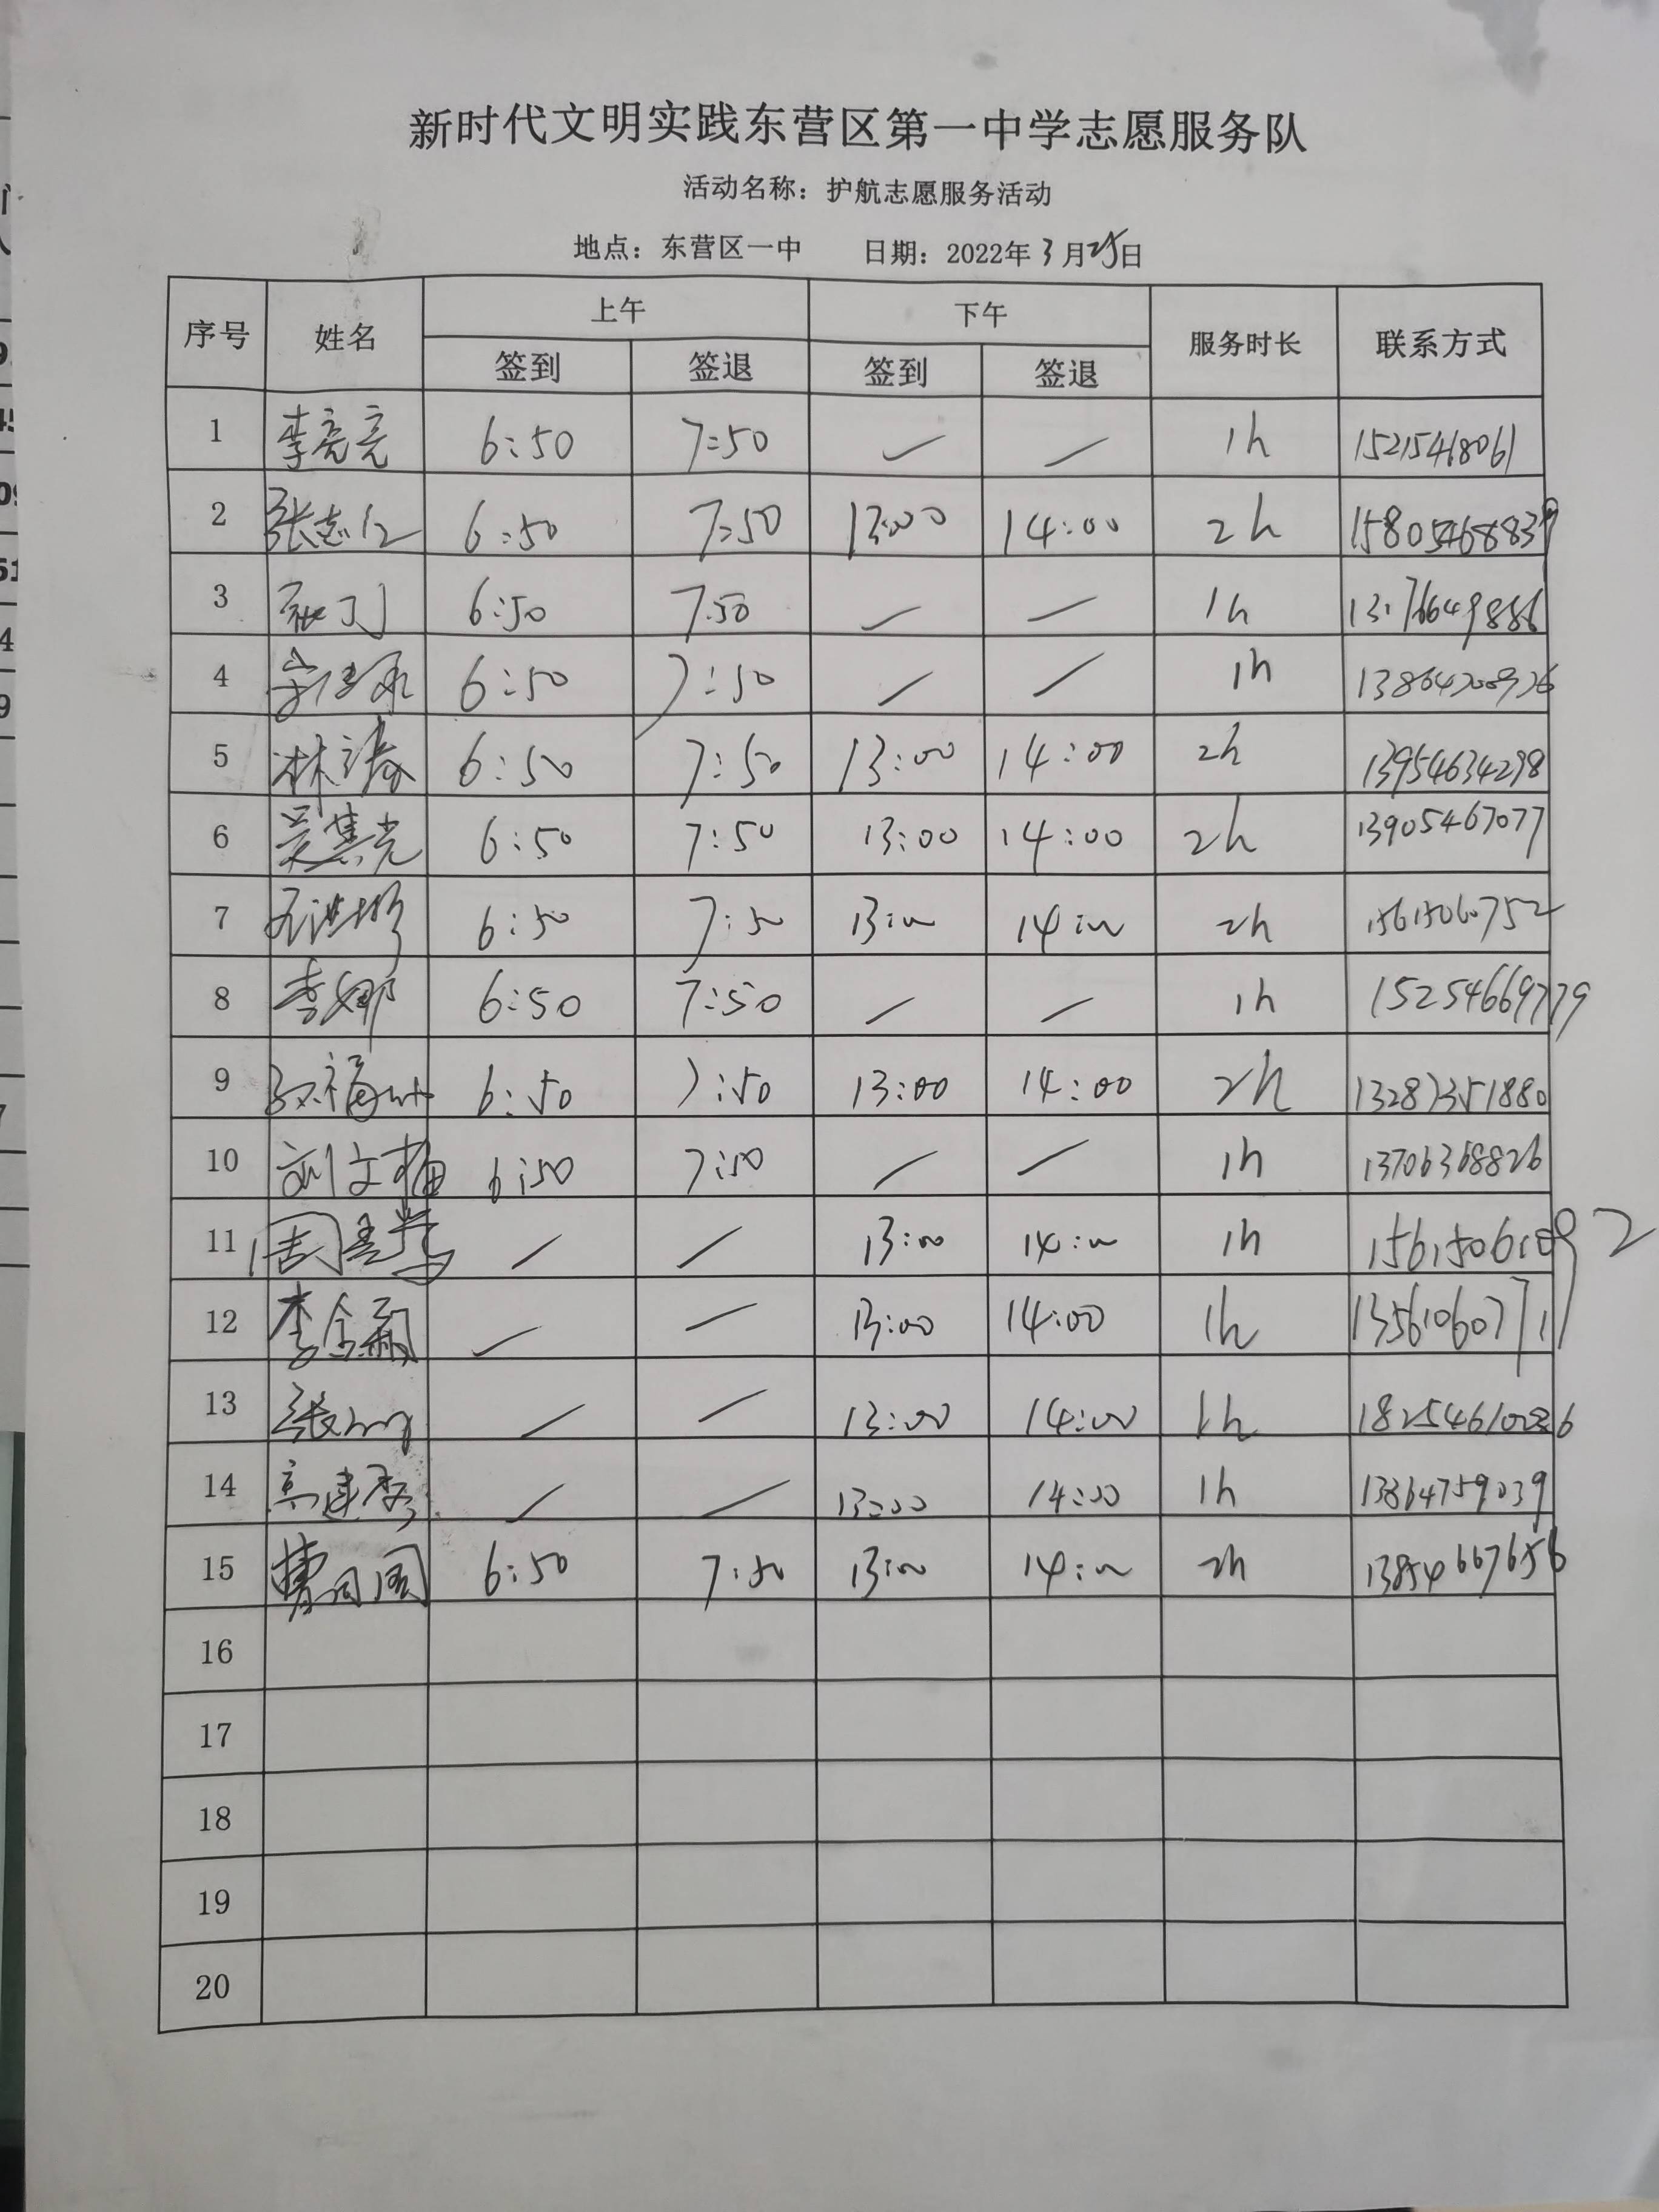 新时代文明实践东营区第一中学志愿服务队
活动名称：护航志愿服务活动
地点：东营区一中 日期：2022年3月25日
序号 姓名 上午 下午 服务时长 联系方式
签到 签退 签到 签退
1 李亮亮 6:50 7:50 — — 1h 15215468061
2 6:50 7:50 13:00 14:00 2h 15805468839
3 6:50 7:50 — — 1h
4 6:50 7:50 — — 1h
5 6:50 7:50 13:00 14:00 2h 13954634298
6 6:50 7:50 13:00 14:00 2h 13905467077
7 6:50 7:50 13:00 14:00 2h 15615060752
8 李娜 6:50 7:50 — — 1h 15254669779
9 6:50 7:50 13:00 14:00 2h 13287351880
10 刘文梅 6:50 7:50 — — 1h 13706368826
11 — — 13:00 14:00 1h
12 — — 13:00 14:00 1h
13 — — 13:00 14:00 1h
14 高建秀 — — 13:00 14:00 1h 13864759039
15 6:50 7:50 13:00 14:00 2h 13854667656
16
17
18
19
20